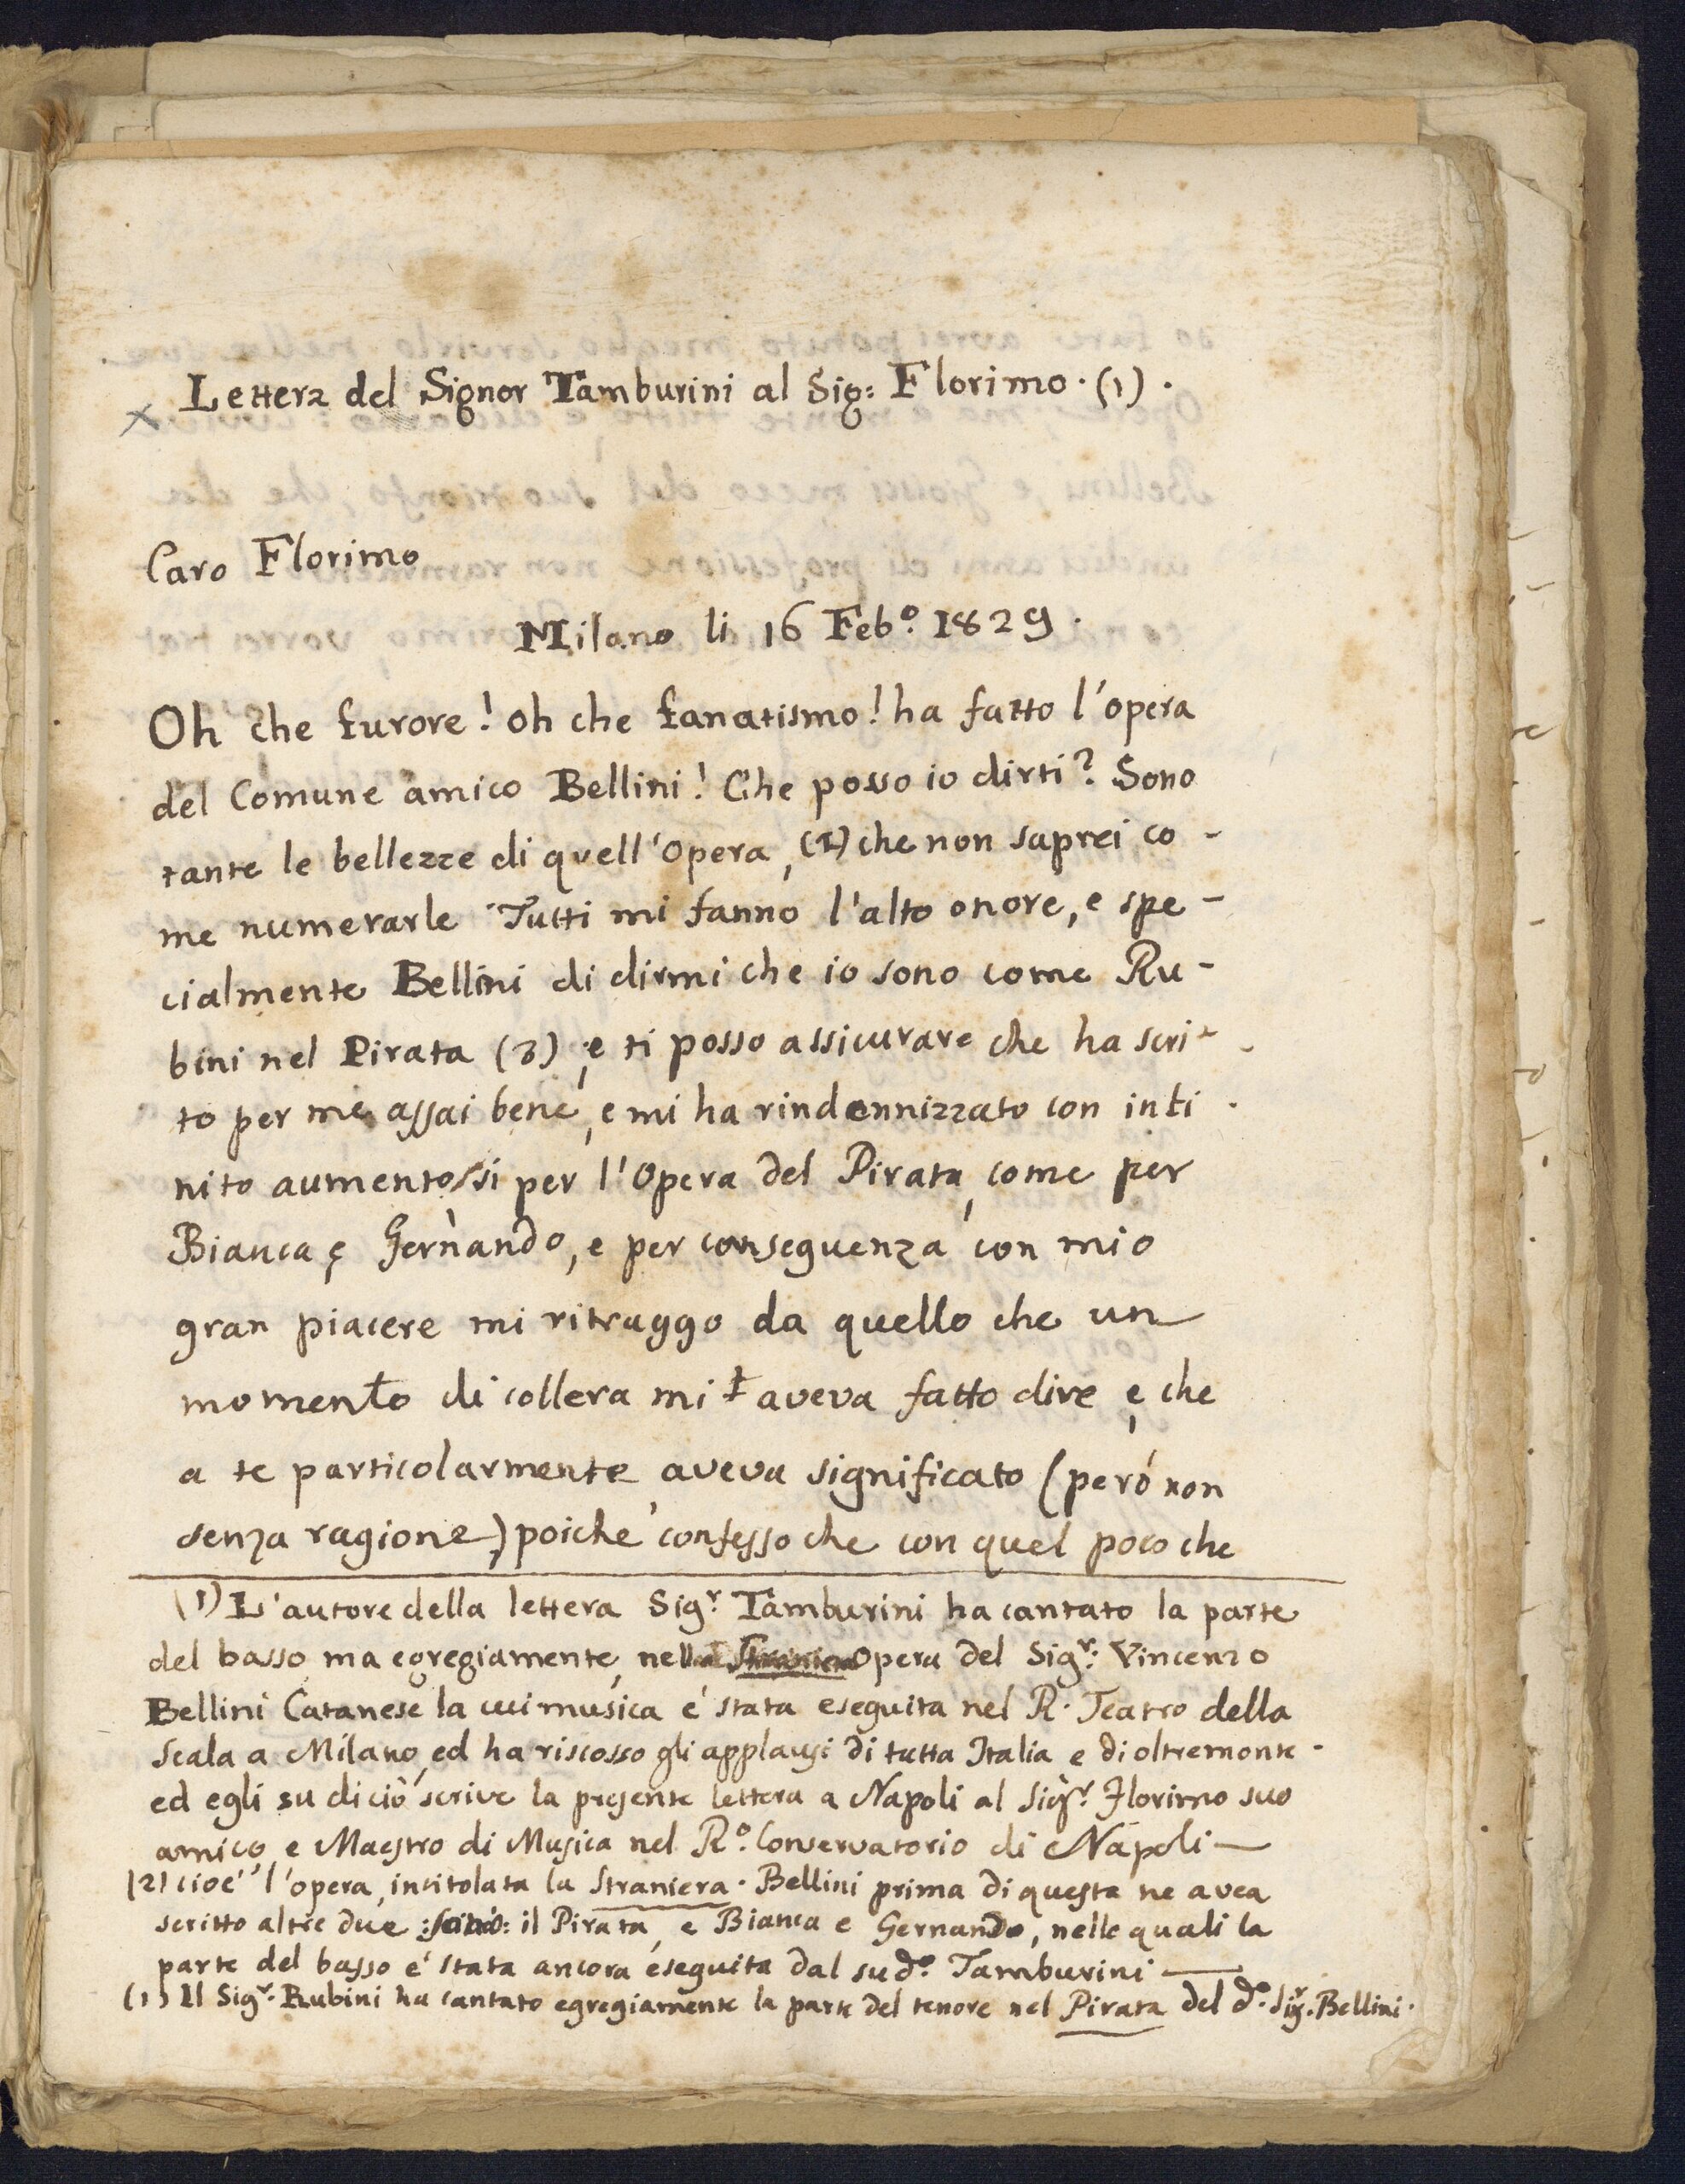 Lettera del Signor Tamburini al Sig: Florimo. (1).
Caro Florimo
Milano li 16 Feb.º 1829.
Oh che furore! oh che fanatismo! ha fatto l'opera
del Comune amico Bellini! Che posso io dirti? Sono
tante le bellezze di quell'Opera, (2) che non saprei co-
me numerarle Tutti mi fanno l'alto onore, e spe-
cialmente Bellini di dirmi che io sono come Ru-
bini nel Pirata (3), e ti posso assicurare che ha scri-
to per me assai bene, e mi ha rindennizzato con infi
nito aumentossi per l'Opera del Pirata, come per
Bianca, e Gernando, e per conseguenza con mio
gran piacere mi ritraggo da quello che un
momento di collera mi aveva fatto dire, e che
a te particolarmente, aveva significato (peró non
senza ragione,) poiche confesso che con quel poco che
(1) L'autore della lettera Sigʳ. Tamburini ha cantato la parte
del basso, ma egregiamente, nella Straniera Opera del Sigʳ: Vincenzo
Bellini Catanese la cui musica é stata eseguita nel R. Teatro della
Scala a Milano, ed ha riscosso gli applausi di tutta Italia e di oltremonte.
ed egli su di ciò scrive la presente lettera a Napoli al Sigʳ. Florimo suo
amico, e Maestro di Musica nel Rº. Conservatorio di Napoli—
(2) cioé l'opera, intitolata la Straniera. Bellini prima di questa ne avea
scritto altre due : il Pirata, e Bianca e Gernando, nelle quali la
parte del basso é stata ancora eseguita dal sudº. Tamburini—
(3) Il Sigʳ. Rubini ha cantato egregiamente la parte del tenore nel Pirata del dº. Sigʳ. Bellini.